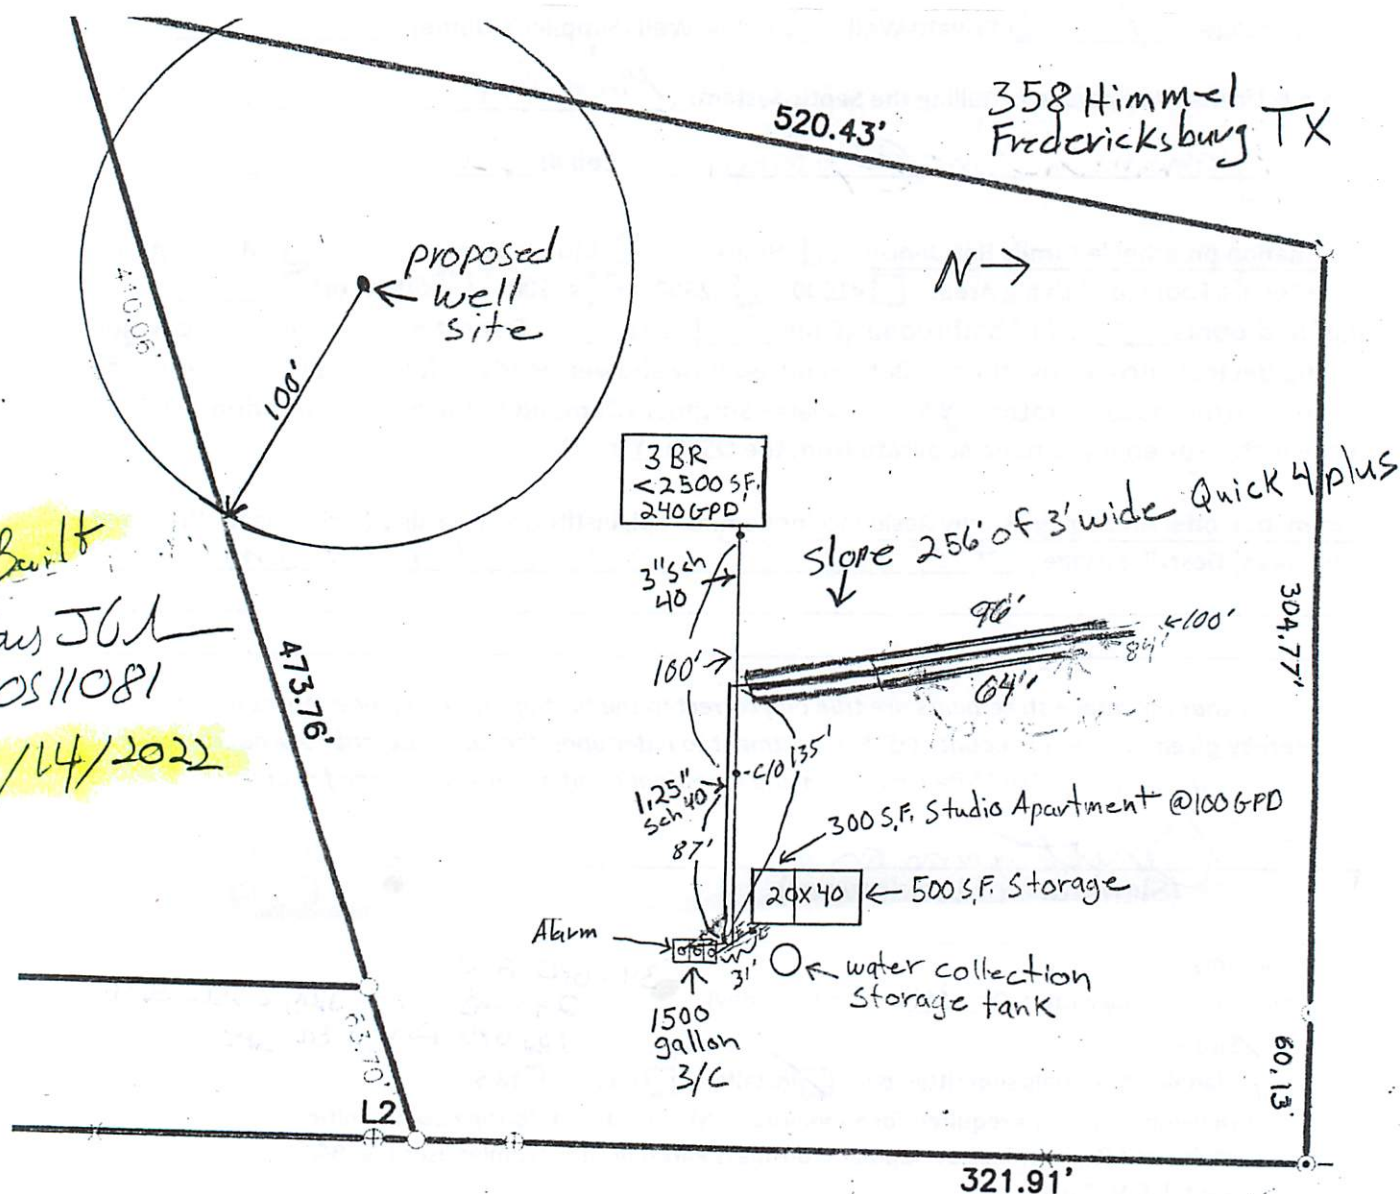 358 Himmel
Fredericksburg TX
520.43'
N
proposed
well
site
440.06'
100'
3 BR
<2500 S.F.
240GPD
slope 256' of 3' wide Quick 4 plus
3" sch
40
96'
100'
84'
64'
304.77'
Built
OS11081
/14/2022
473.76'
100'
135'
c/o
1.25"
sch 40
87'
300 S.F. Studio Apartment @100GPD
20x40
500 S.F. Storage
Alarm
3'
water collection
storage tank
1500
gallon
3/C
63.70'
60.13'
L2
321.91'